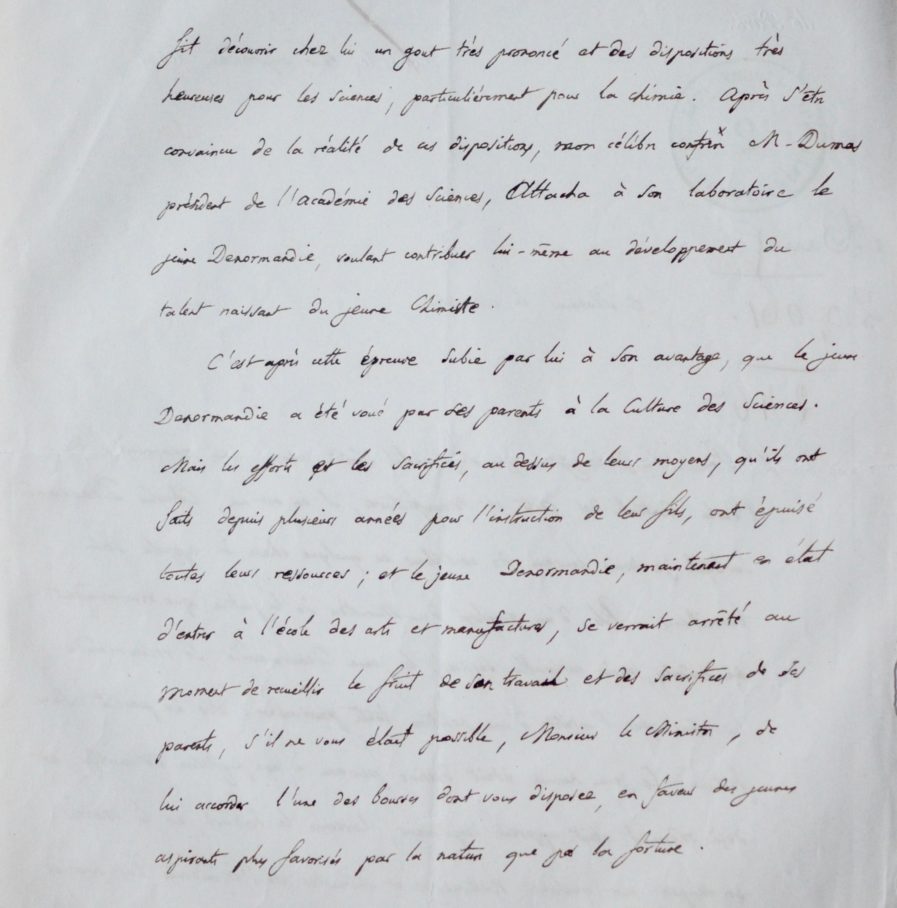 fit découvrir chez lui un gout très prononcé et des dispositions très
heureuses pour les sciences, particulièrement pour la chimie. Après s'être
convaincu de la réalité de ces dispositions, mon célèbre confrère M. Dumas
président de l'académie des sciences, attacha à son laboratoire le
jeune Denormandie, voulant contribuer lui-même au développement du
talent naissant du jeune Chimiste.
C'est après cette épreuve subie par lui à son avantage, que le jeune
Denormandie a été voué par ses parents à la Culture des Sciences.
Mais les efforts et les sacrifices, au dessus de leurs moyens, qu'ils ont
faits depuis plusieurs années pour l'instruction de leur fils, ont épuisé
toutes leurs ressources; et le jeune Denormandie, maintenant en état
d'entrer à l'école des arts et manufactures, se verrait arrêté au
moment de recueillir le fruit de son travail et des sacrifices de ses
parents, s'il ne vous était possible, Monsieur le Ministre, de
lui accorder l'une des bourses dont vous disposez, en faveur des jeunes
aspirants plus favorisés par la nature que par la fortune.